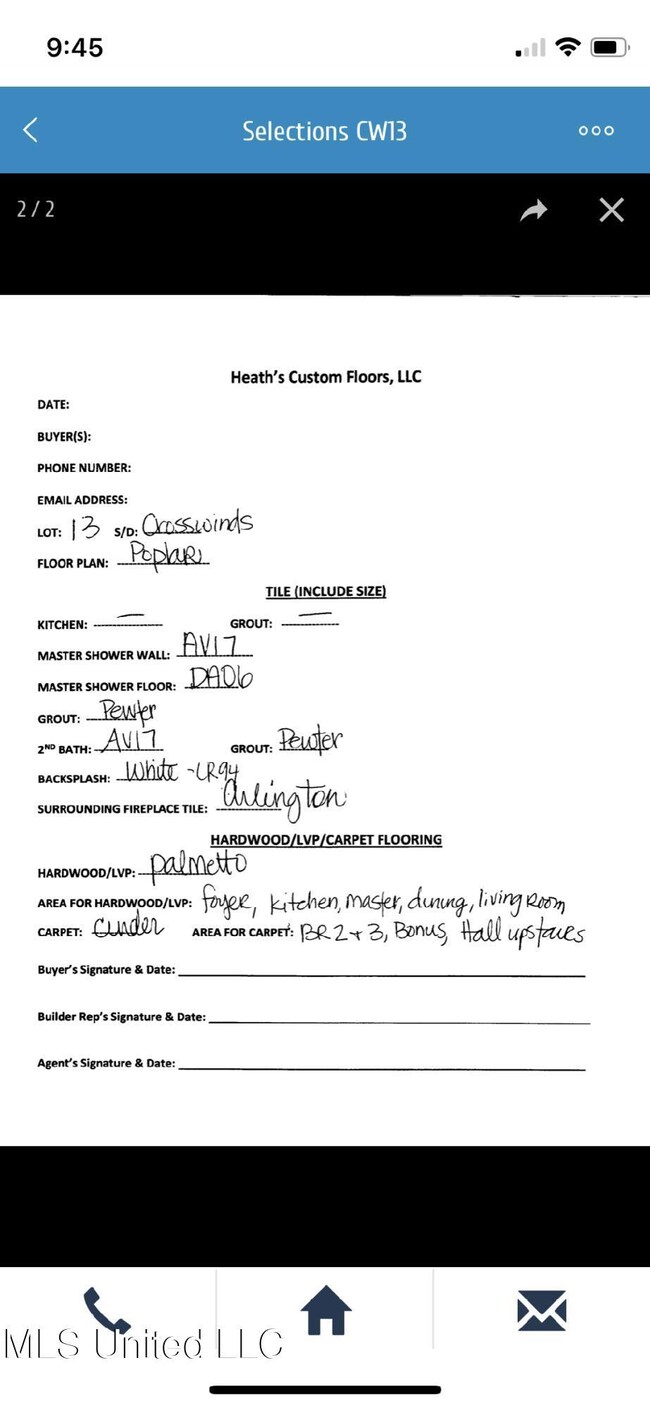 9:45
Selections CW13
2/2
Heath's Custom Floors, LLC
DATE:
BUYER(S):
PHONE NUMBER:
EMAIL ADDRESS:
LOT: 13 S/D: Crosswinds
FLOOR PLAN: Poplar
TILE (INCLUDE SIZE)
KITCHEN: — GROUT: —
MASTER SHOWER WALL: AV17
MASTER SHOWER FLOOR: DA06
GROUT: Pewter
2ND BATH: AV17 GROUT: Pewter
BACKSPLASH: White - LR94
SURROUNDING FIREPLACE TILE: Arlington
HARDWOOD/LVP/CARPET FLOORING
HARDWOOD/LVP: palmetto
AREA FOR HARDWOOD/LVP: foyer, kitchen, master, dining, living Room
CARPET: Cinder AREA FOR CARPET: BR 2 + 3, Bonus, Hall upstairs
Buyer's Signature & Date:
Builder Rep's Signature & Date:
Agent's Signature & Date:
MLS United LLC